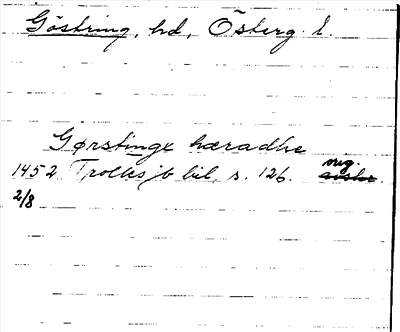 Göstring, hd, Österg. l.
Gørstinge hæradhe
1452 Trolles jb bil, s. 126. orig.
2/8